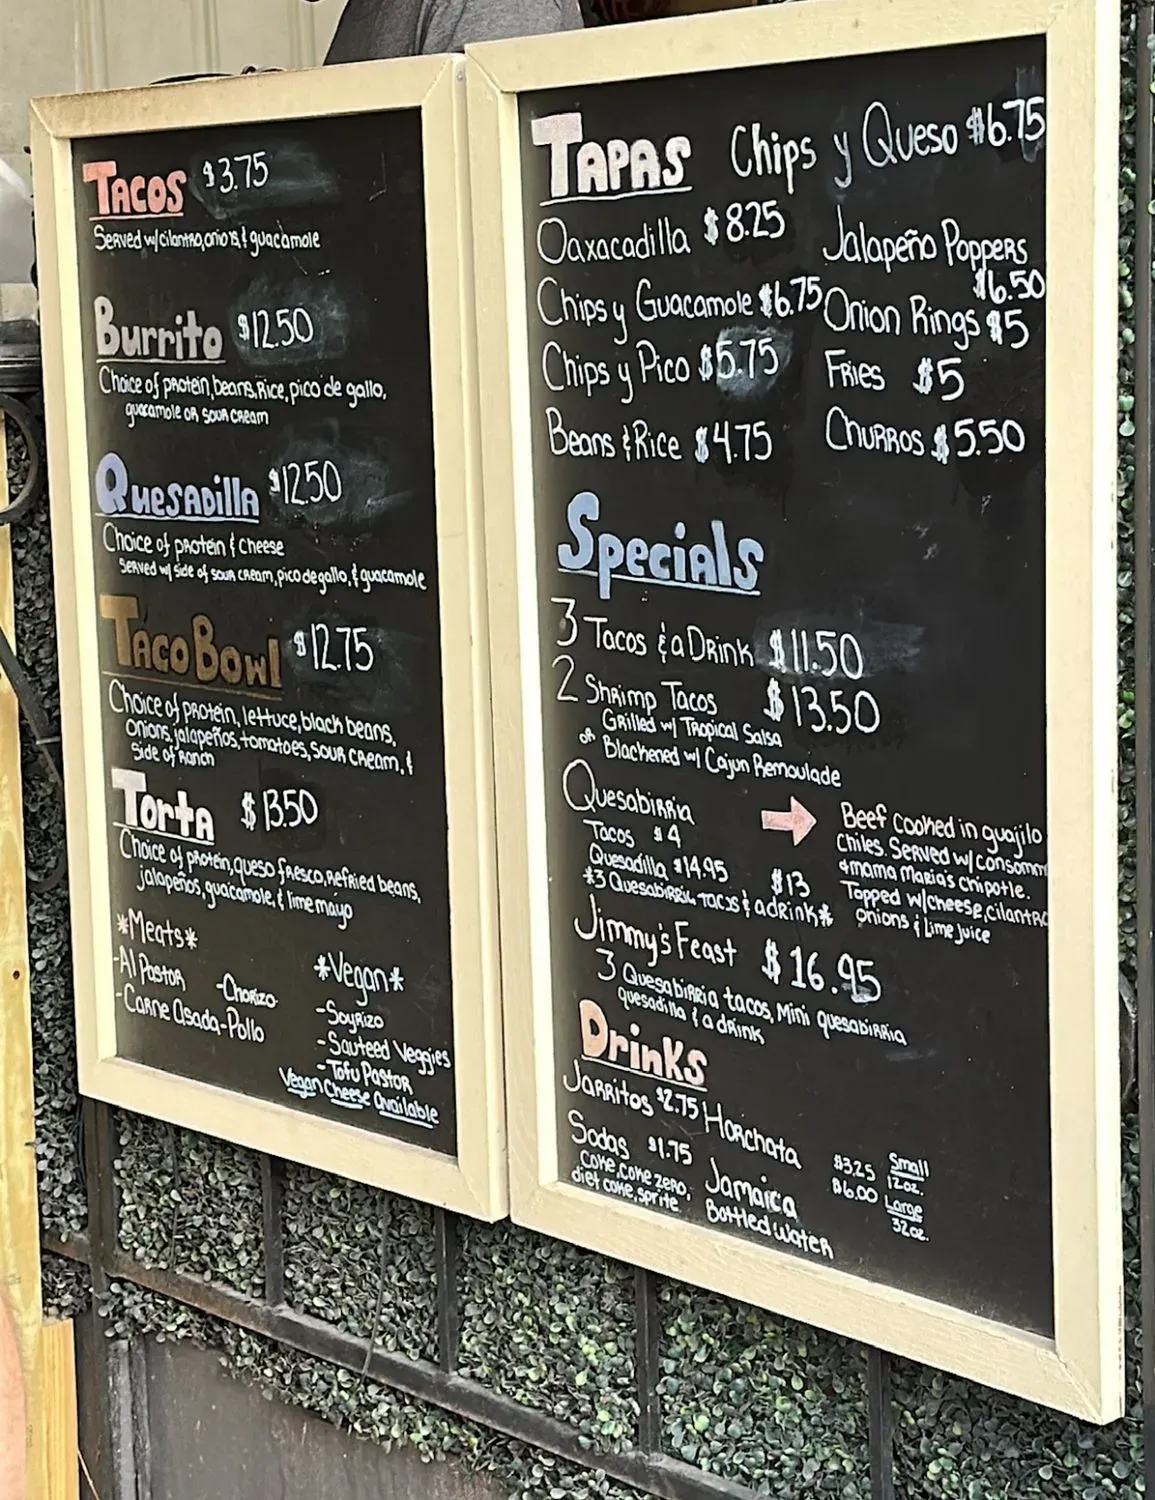 TACOS $3.75
Served w/cilantro, onions, & guacamole
Burrito $12.50
Choice of protein, beans, Rice, pico de gallo,
guacamole or sour cream
Quesadilla $12.50
Choice of protein & cheese
Served w/ side of sour cream, pico de gallo, & guacamole
Taco Bowl $12.75
Choice of protein, lettuce, black beans,
onions, jalapeños, tomatoes, sour cream, &
Side of Ranch
Torta $13.50
Choice of protein, queso fresco, refried beans,
jalapeños, guacamole, & lime mayo
*Meats*
-Al Pastor -Chorizo
-Carne Asada -Pollo
*Vegan*
-Soyrizo
-Sauteed Veggies
-Tofu Pastor
Vegan Cheese Available
TAPAS Chips y Queso $6.75
Oaxacadilla $8.25
Chips y Guacamole $6.75
Chips y Pico $5.75
Beans & Rice $4.75
Jalapeño Poppers
$6.50
Onion Rings $5
Fries $5
Churros $5.50
Specials
3 Tacos & a Drink $11.50
2 Shrimp Tacos $13.50
Grilled w/ Tropical Salsa
or Blackened w/ Cajun Remoulade
Quesabirria
Tacos $4
Quesadilla $14.95
*3 Quesabirria tacos & a drink* $13
Beef cooked in guajilo
Chiles. Served w/ consomm
& mama Maria's chipotle.
Topped w/cheese, cilantro
onions & lime juice
Jimmy's Feast $16.95
3 Quesabirria tacos, Mini quesabirria
quesadilla & a drink
Drinks
Jarritos $2.75
Sodas $1.75
Coke, coke zero,
diet coke, sprite
Horchata
Jamaica
Bottled Water
$3.25 Small
12oz.
$6.00 Large
32oz.